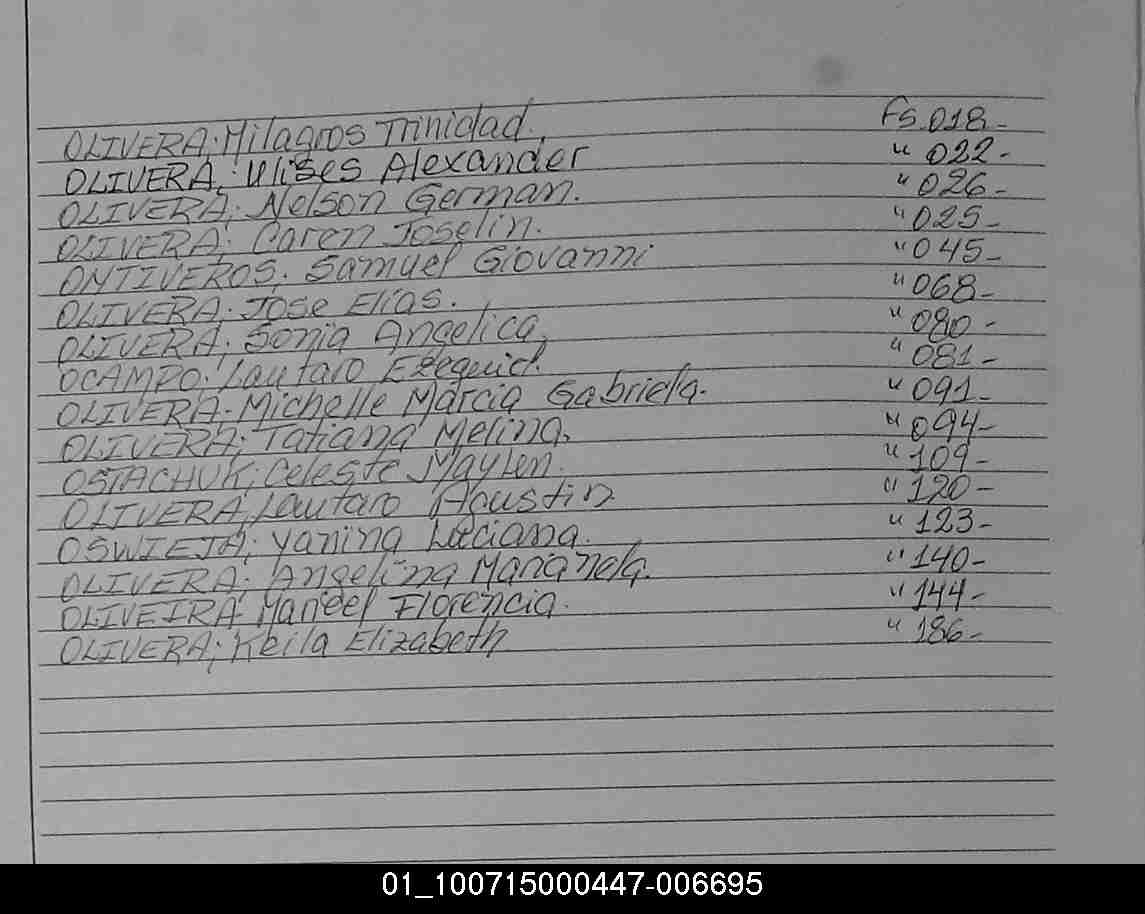 OLIVERA; Milagros Trinidad. Fs. 018-
OLIVERA; Ulises Alexander " 022-
OLIVERA; Nelson German. " 026-
OLIVERA; Caren Joselin. " 025-
ONTIVEROS; Samuel Giovanni " 045-
OLIVERA; Jose Elias. " 068-
OLIVERA; Sonia Angelica, " 080-
OCAMPO; Lautaro Ezequiel. " 081-
OLIVERA; Michelle Marcia Gabriela. " 091-
OLIVERA; Tatiana Melina. " 094-
OSTACHUK; Celeste Maylen. " 109-
OLIVERA; Lautaro Agustin " 120-
OSWIEJA; Yanina Luciana. " 123-
OLIVERA; Angelina Marianela. " 140-
OLIVEIRA; Florencia. " 144-
OLIVERA; Keila Elizabeth " 186-
01_100715000447-006695